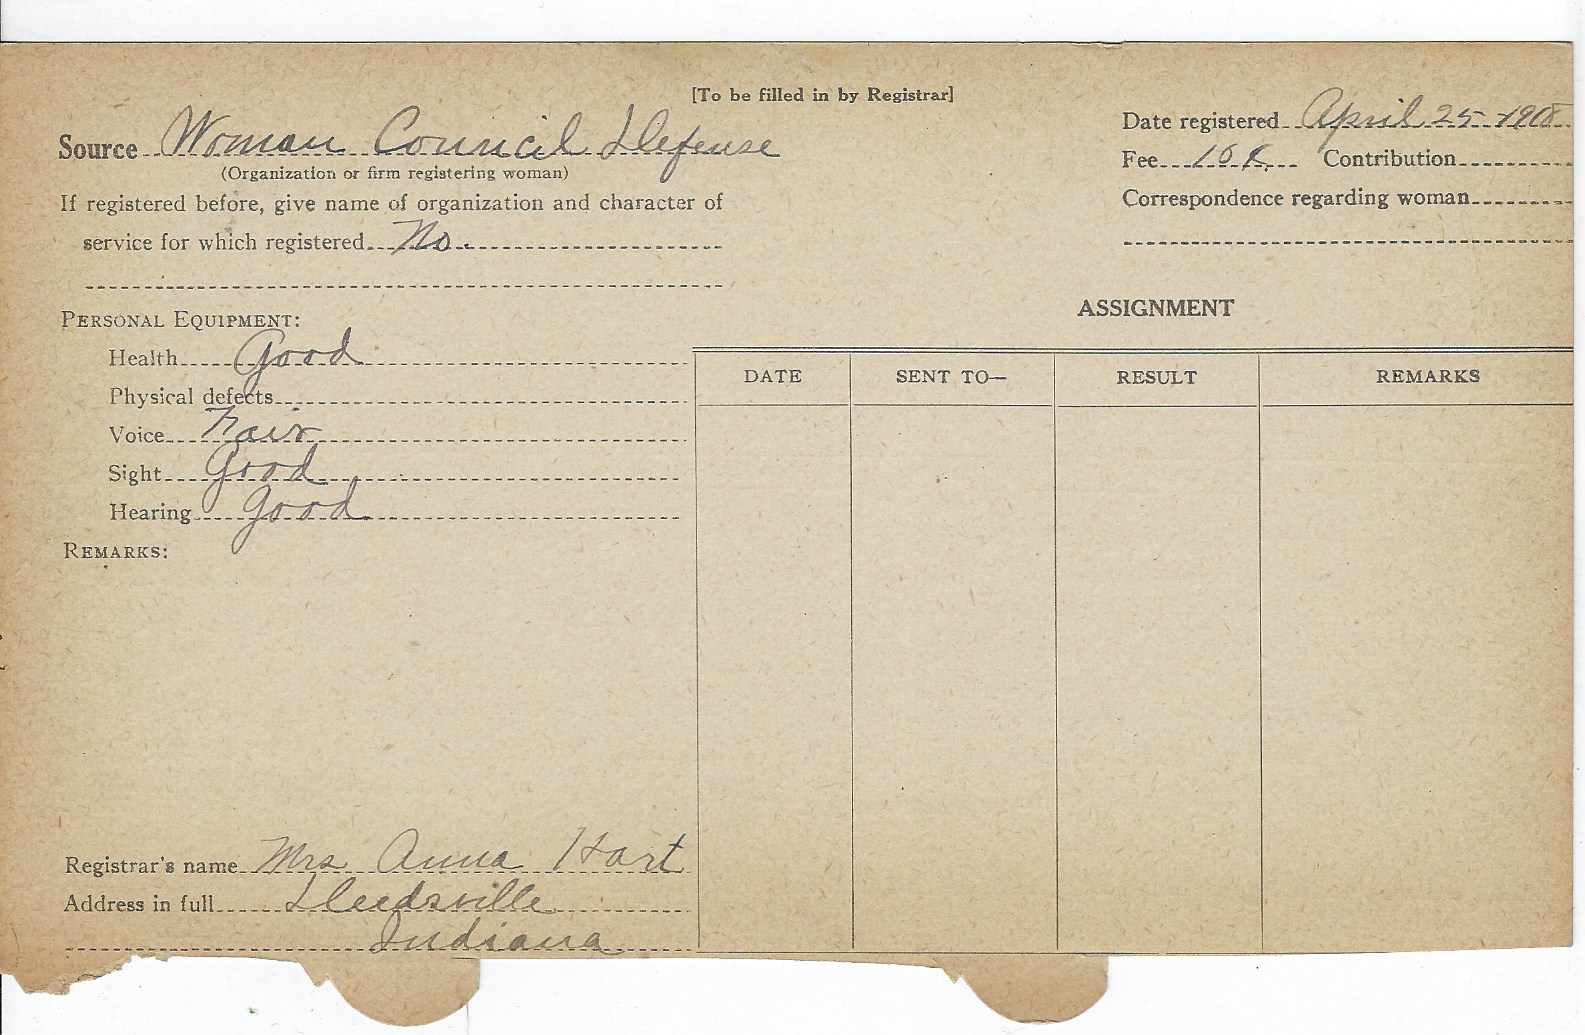 [To be filled in by Registrar]
Source Woman Council Defense
(Organization or firm registering woman)
Date registered April 25-1908
Fee 10¢ Contribution
If registered before, give name of organization and character of
Correspondence regarding woman
service for which registered No.
ASSIGNMENT
PERSONAL EQUIPMENT:
Health Good
DATE SENT TO— RESULT REMARKS
Physical defects
Voice Fair
Sight Good
Hearing Good
REMARKS:
Registrar's name Mrs Anna Hart
Address in full Deedsville
Indiana